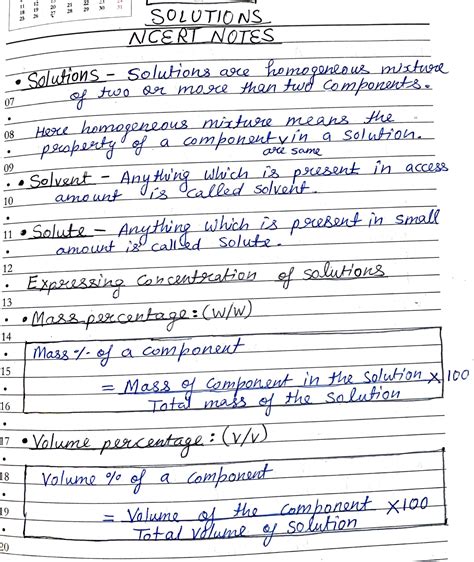 SOLUTIONS
NCERT NOTES
• Solutions – Solutions are homogeneous mixture
07 of two or more than two components.
08 Here homogeneous mixture means the
property of a component in a solution.
are same
09
• Solvent – Anything which is present in access
10 amount is called solvent.
11 • Solute – Anything which is present in small
amount is called solute.
12
Expressing concentration of solutions
13
• Mass percentage: (w/w)
14
Mass % of a component
15
= Mass of component in the solution × 100
16 Total mass of the solution
17 • Volume percentage: (v/v)
18 Volume % of a component
19 = Volume of the component ×100
Total volume of solution
20